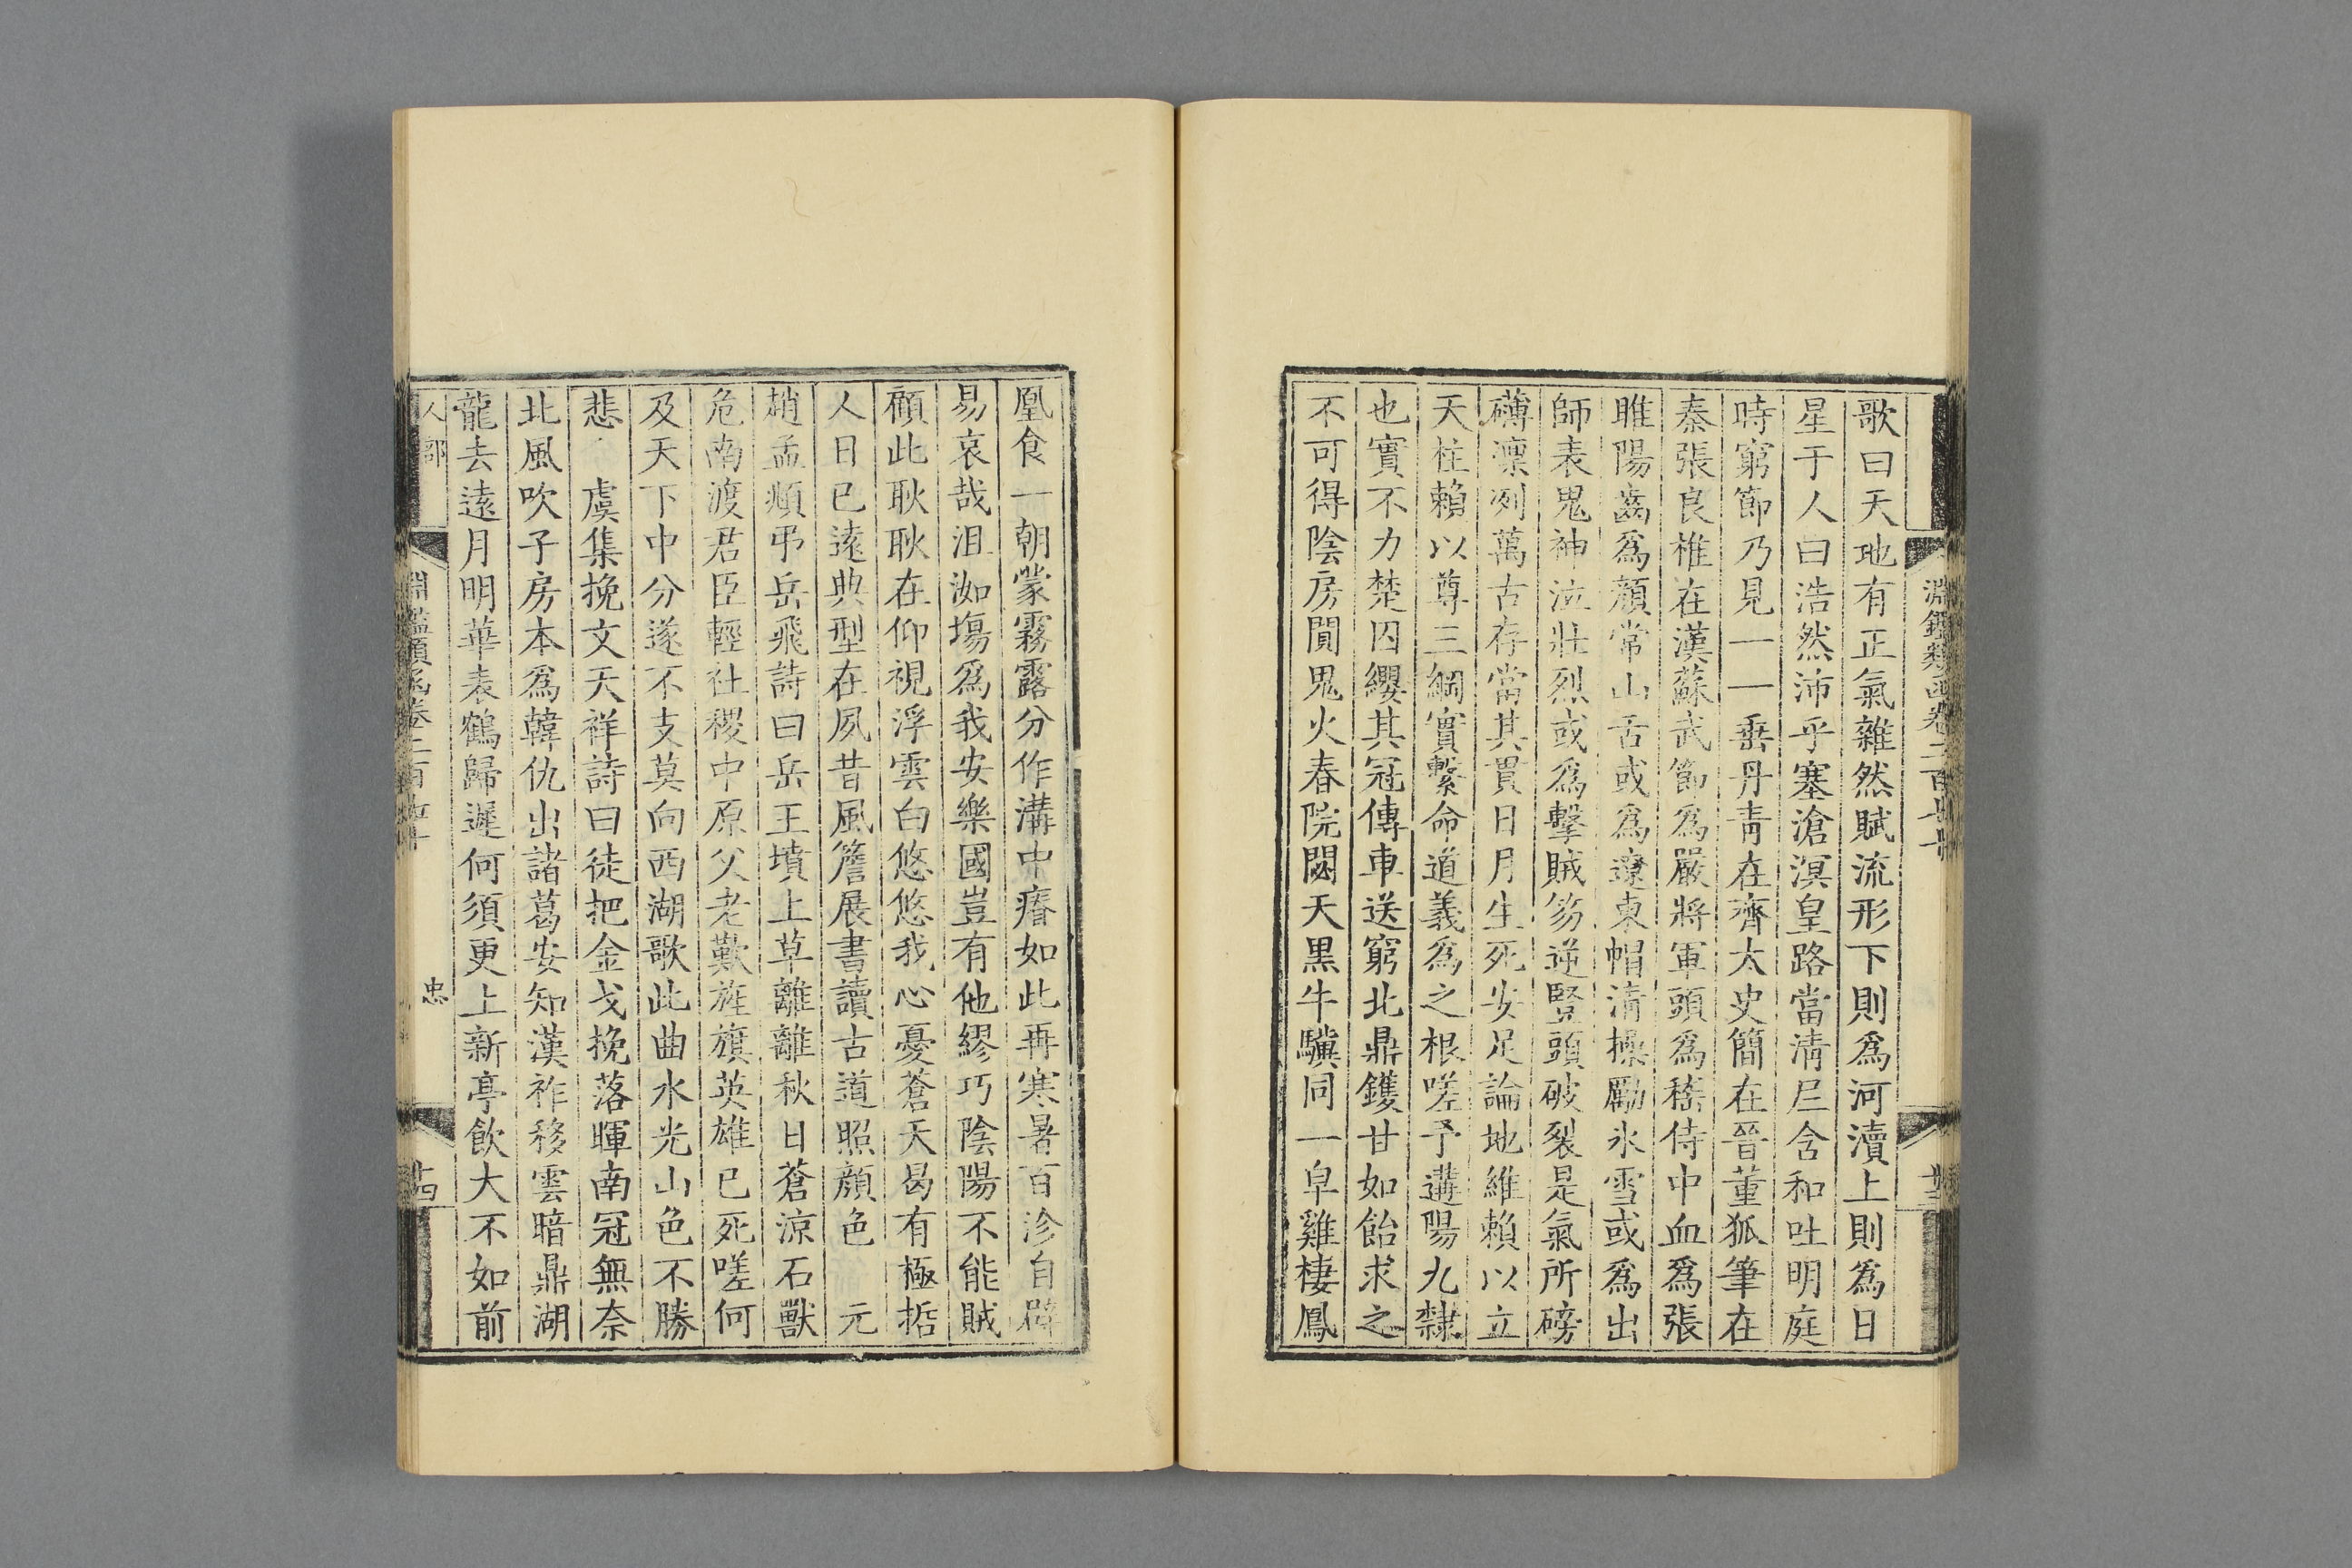 歌曰天地有正氣雜然賦流形下則爲河瀆上則爲日
星于人曰浩然沛乎塞滄溟皇路當清㠯含和吐明庭
時窮節乃見一一垂丹青在齊太史簡在晉董狐筆在
秦張良椎在漢蘇武節爲嚴將軍頭爲嵇侍中血爲張
睢陽齒爲顏常山舌或爲遼東帽清操勵氷雪或爲出
師表鬼神泣壯烈或爲擊賊笏逆豎頭破裂是氣所磅
礴凜冽萬古存當其貫日月生死安足論地維賴以立
天柱賴以尊三綱實繫命道義爲之根嗟予遘陽九隸
也實不力楚囚纓其冠傳車送窮北鼎鑊甘如飴求之
不可得陰房閴鬼火春院閟天黑牛驥同一皁雞棲鳳
凰食一朝蒙霧露分作溝中瘠如此再寒暑百沴自辟
易哀哉沮洳塲爲我安樂國豈有他繆巧陰陽不能賊
顧此耿耿在仰視浮雲白悠悠我心憂蒼天曷有極哲
人日已遠典型在夙昔風簷展書讀古道照顏色　元
趙孟頫弔岳飛詩曰岳王墳上草離離秋日蒼涼石獸
危南渡君臣輕社稷中原父老歎旌旗英雄已死嗟何
及天下中分遂不支莫向西湖歌此曲水光山色不勝
悲　虞集挽文天祥詩曰徒把金戈挽落暉南冠無奈
北風吹子房本爲韓仇出諸葛安知漢祚移雲暗鼎湖
龍去遠月明華表鶴歸遲何須更上新亭飲大不如前
人部
淵鑑類函卷二百七十
忠